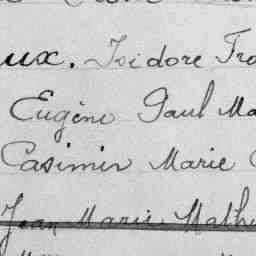 ux. Isidore Fra
Eugène Paul Ma
Casimir Marie
Jean Marie Math